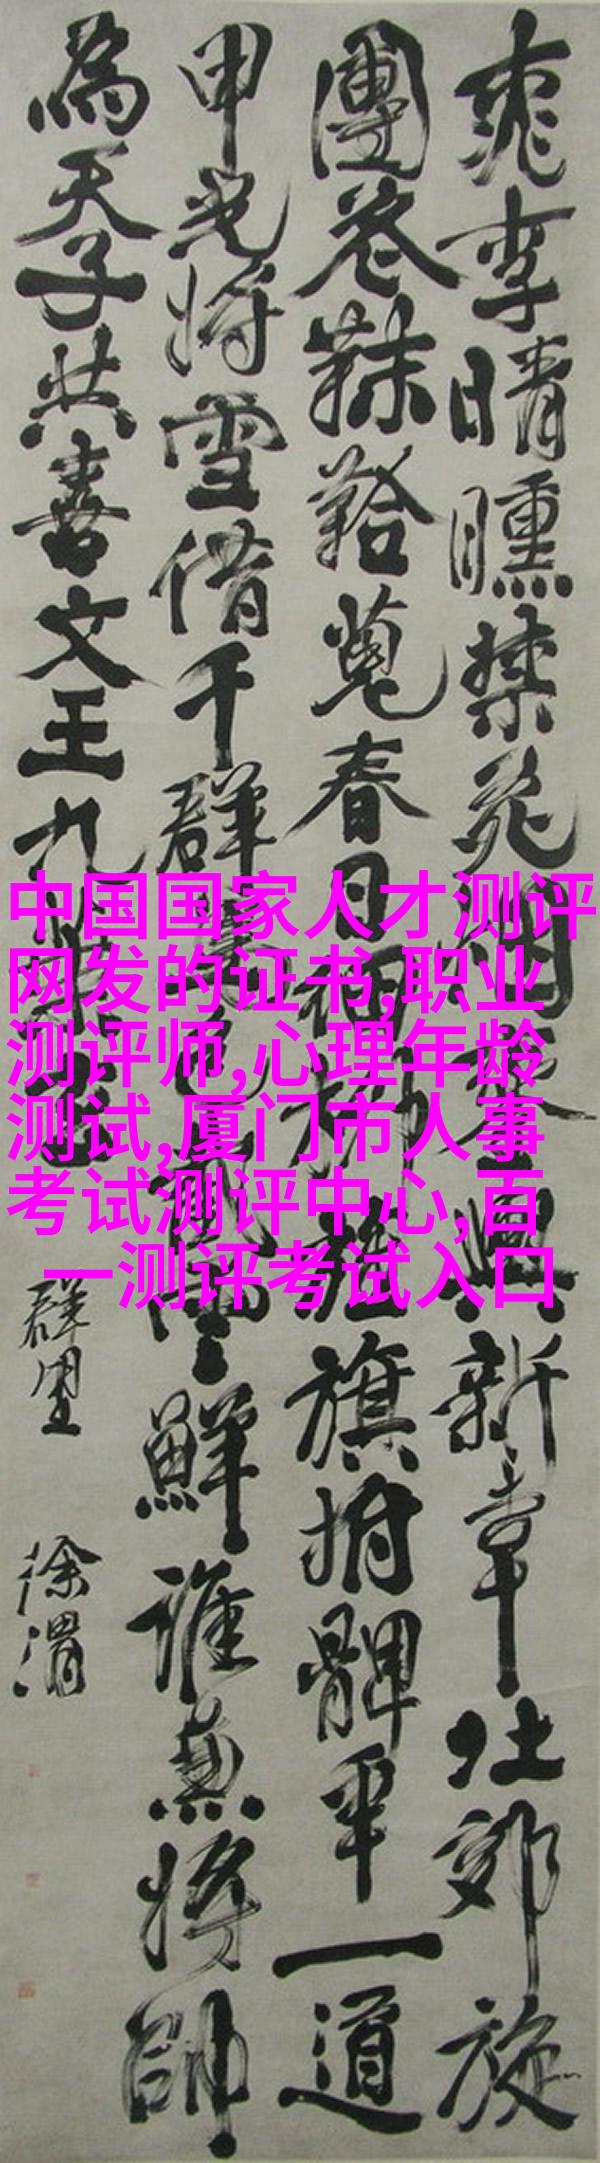 李晴曛禁新章壮郊旋
團鞈蒐春日旌旗拊髀平一道
甲光將雪借千群色鮮誰兼將帥
為天子共喜文王九
徐渭
中国国家人才测评
网发的证书,职业
测评师,心理年龄
测试,厦门市人事
考试测评中心,百
一测评考试入口